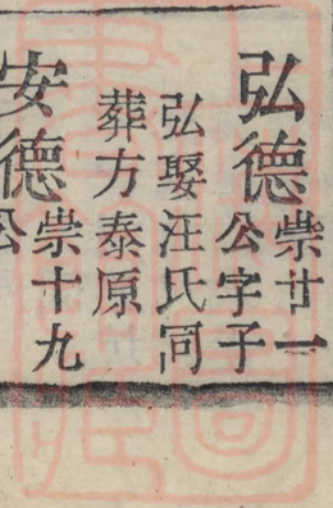 弘德崇廿一
公字子
弘娶汪氏同
葬方泰原
安德崇十九
公